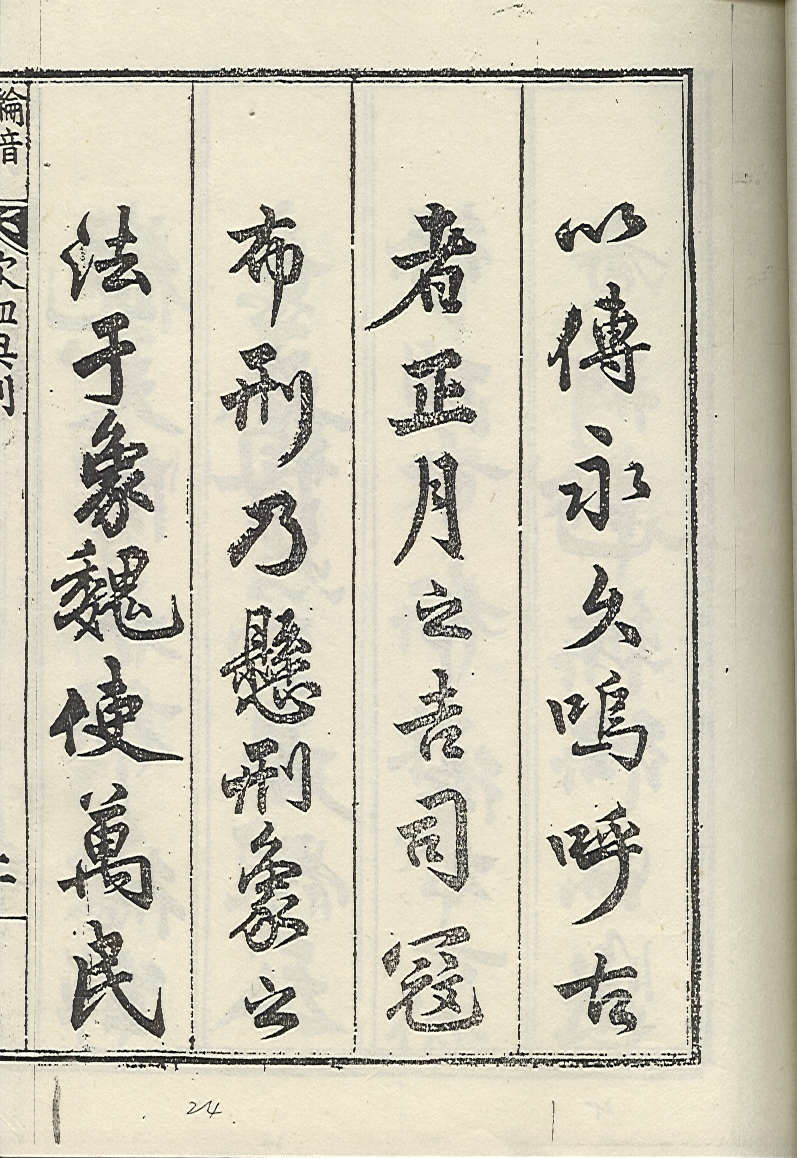 以傳永久嗚呼古
者正月之吉司寇
布刑乃懸刑象之
法于象魏使萬民
綸音
24